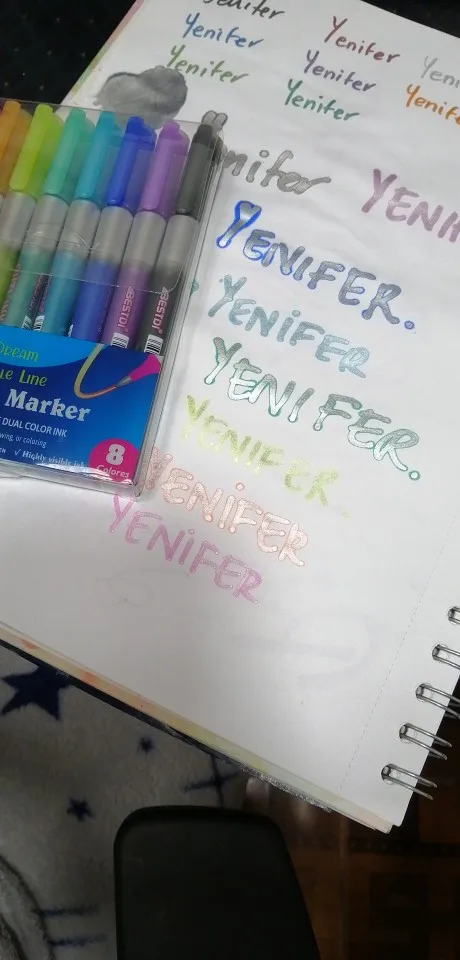 Yenifer
Yenifer
Yenifer
Yenifer
Yenifer
Yenifer
YENIFER.
YENIFER
YENIFER.
YENIFER.
YENIFER
YENIFER
BESTDI
BESTDI
Dream
Line
Marker
DUAL COLOR INK
or coloring
√ Highly visible
8
Colores